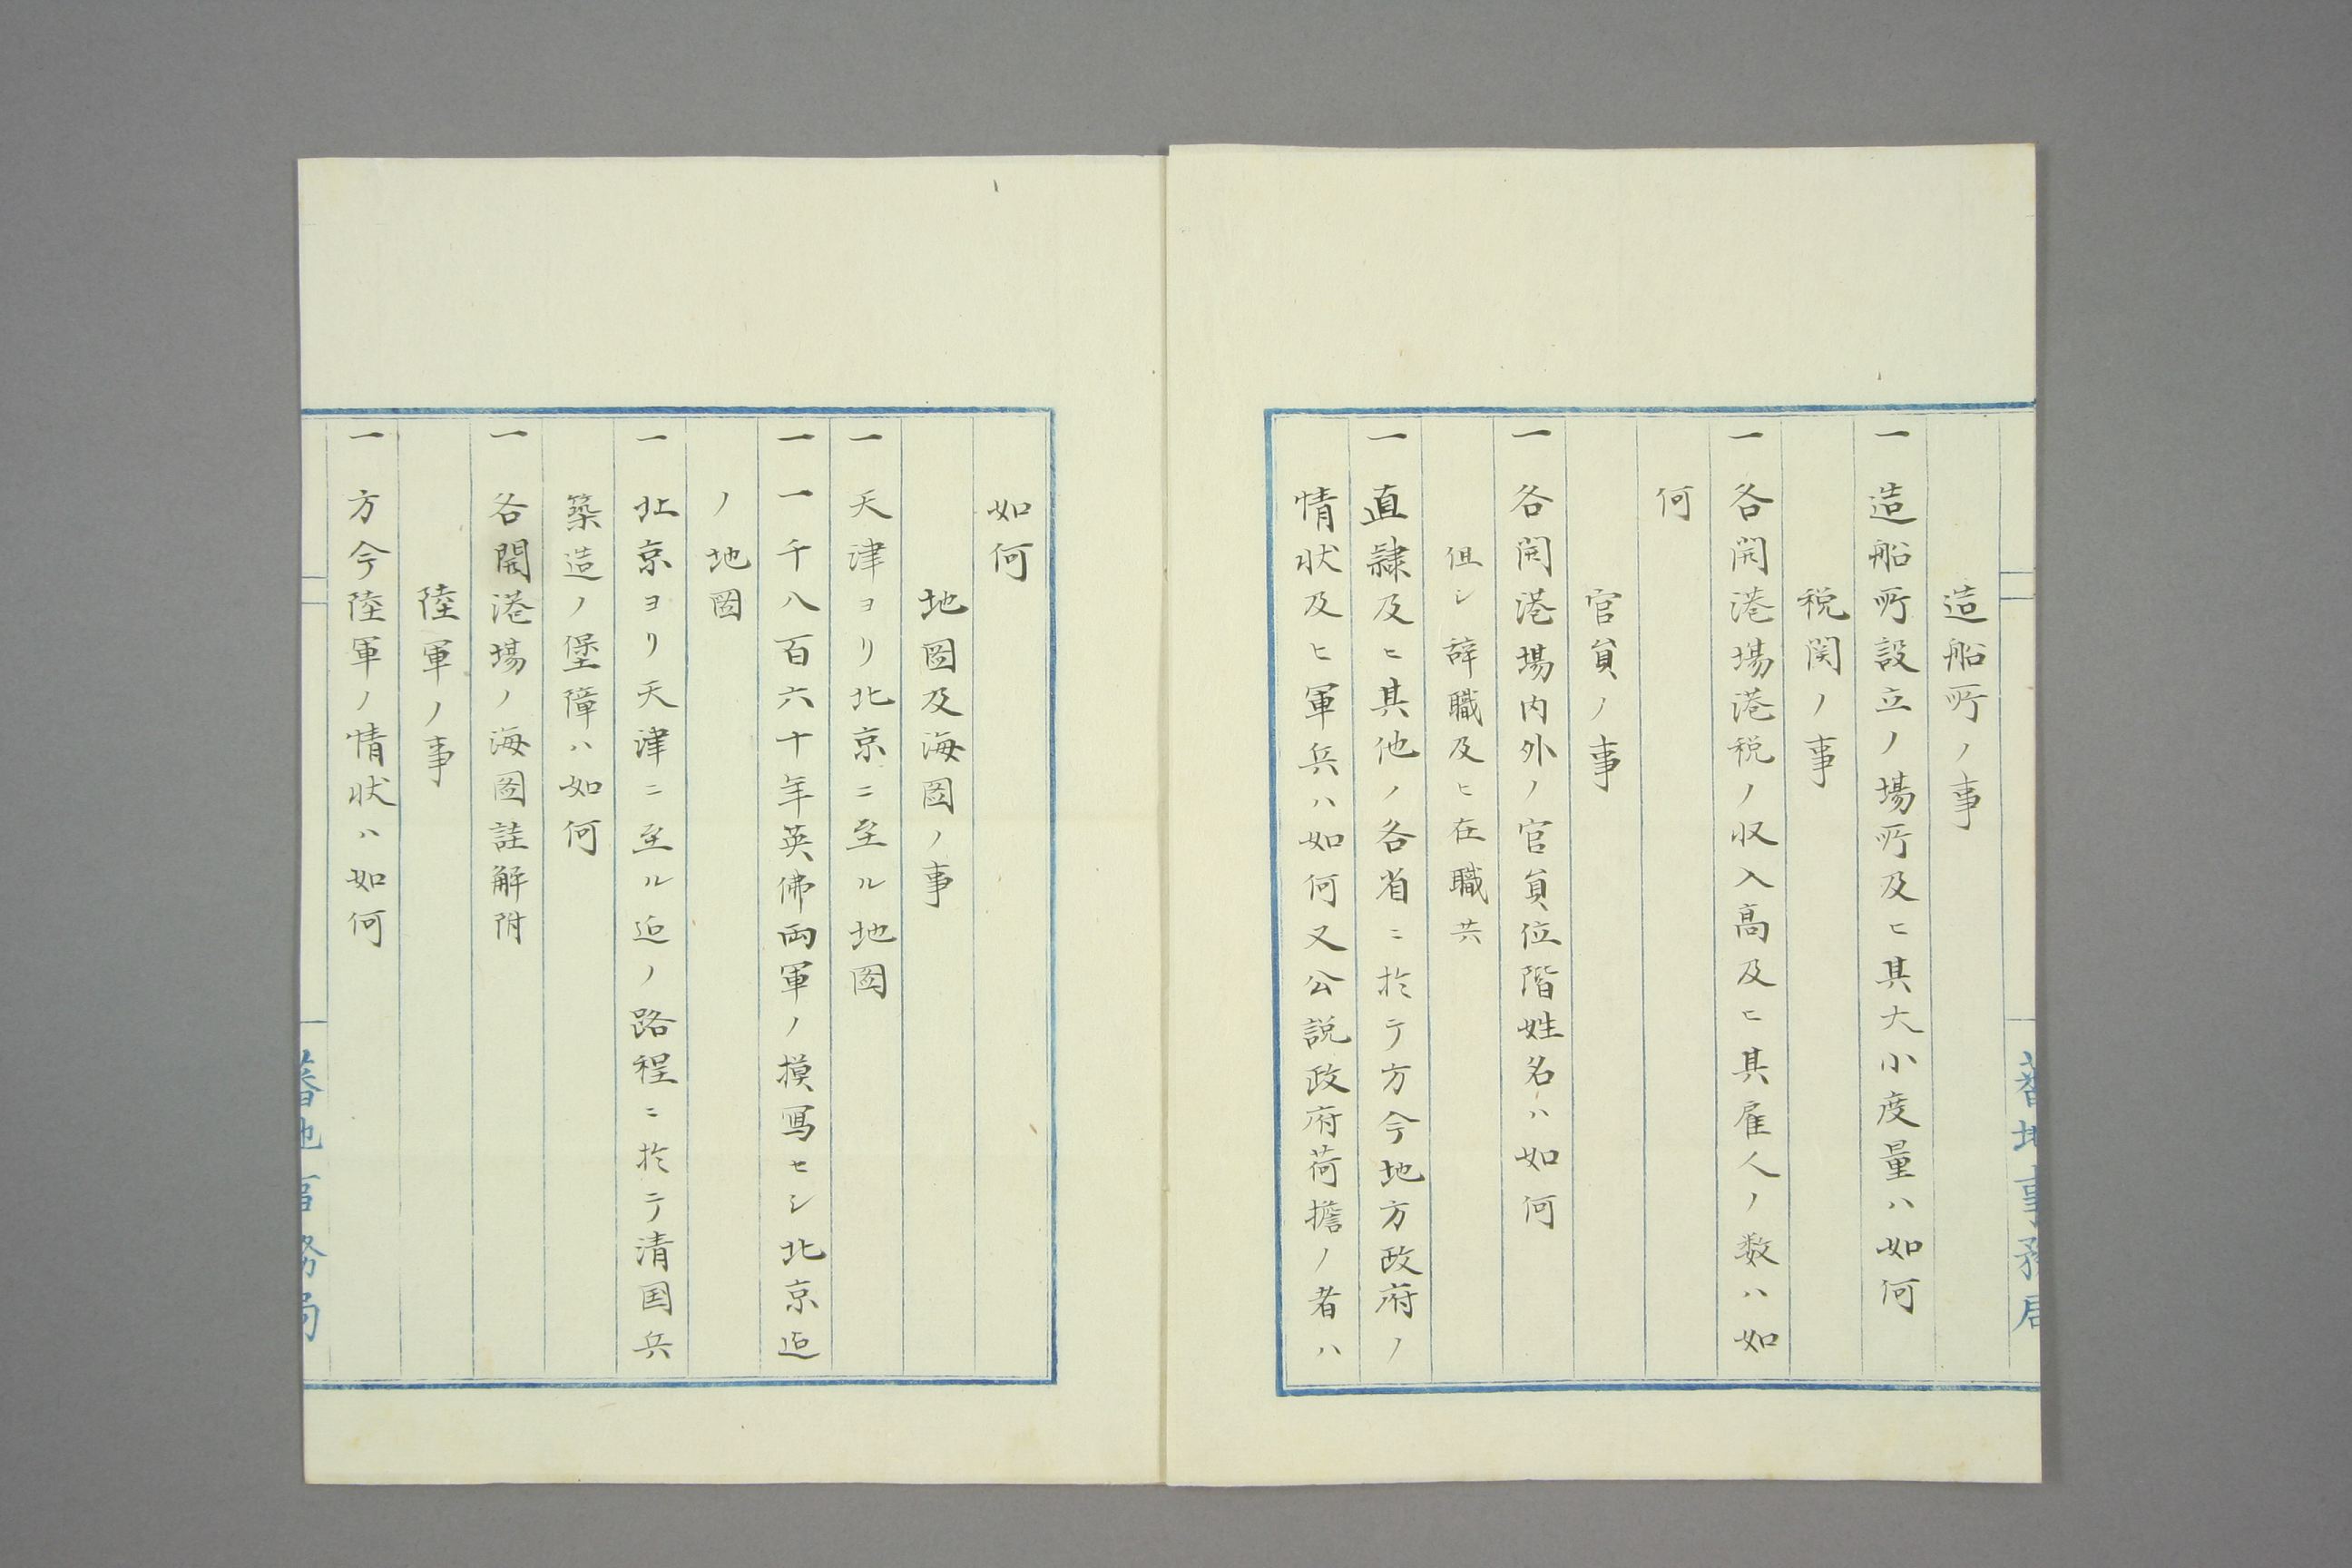 造船所ノ事
一 造船所設立ノ場所及ヒ其大小度量ハ如何
税関ノ事
一 各開港場港税ノ収入高及ヒ其雇人ノ数ハ如
何
官員ノ事
一 各開港場内外ノ官員位階姓名ハ如何
但シ辞職及ヒ在職共
一 直隷及ヒ其他ノ各省ニ於テ方今地方政府ノ
情状及ヒ軍兵ハ如何又公説政府荷擔ノ者ハ
蕃地事務局
如何
地図及海図ノ事
一 天津ヨリ北京ニ至ル地図
一 一千八百六十年英佛両軍ノ摸寫セシ北京迠
ノ地図
一 北京ヨリ天津ニ至ル迠ノ路程ニ於テ清国兵
築造ノ堡障ハ如何
一 各開港場ノ海図註解附
陸軍ノ事
一 方今陸軍ノ情状ハ如何
蕃地事務局